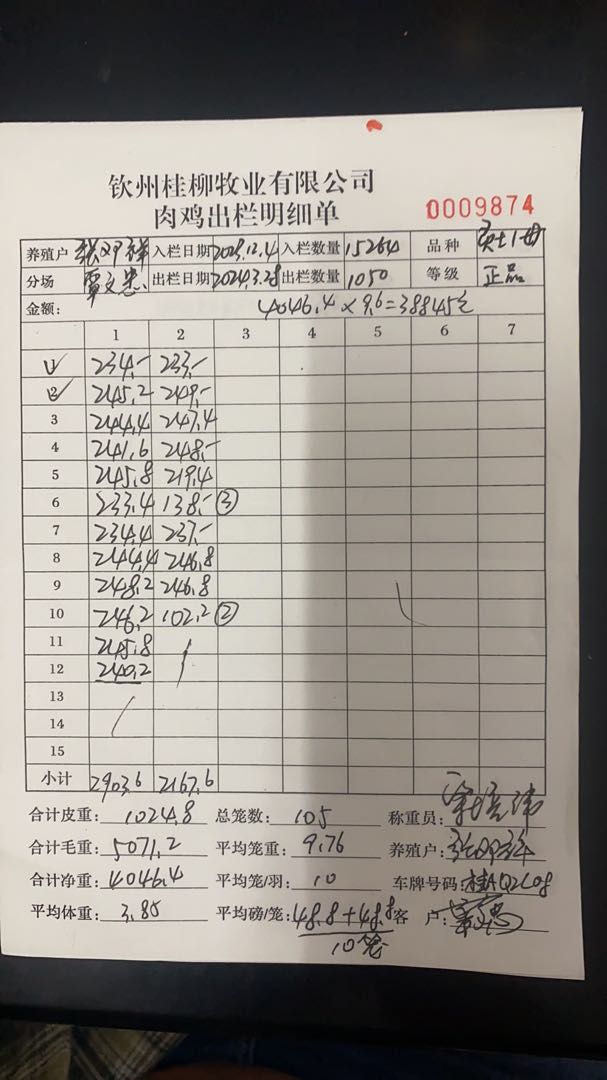 钦州桂柳牧业有限公司
肉鸡出栏明细单 0009874
养殖户 张邓祥 入栏日期 2023.12.4 入栏数量 15264 品种
分场 出栏日期 2024.3.28 出栏数量 1050 等级 正品
金额: 4046.4×9.6=38845元
1 2 3 4 5 6 7
1 234.- 233.-
2 245.2 249.-
3 244.4 247.4
4 241.6 248.-
5 245.8 219.4
6 233.4 138.- ③
7 234.4 237.-
8 244.4 246.8
9 248.2 246.8
10 246.2 102.2 ②
11 245.8
12 240.2
13
14
15
小计 2903.6 2167.6
合计皮重: 1024.8 总笼数: 105 称重员:
合计毛重: 5071.2 平均笼重: 9.76 养殖户:
合计净重: 4046.4 平均笼/羽: 10 车牌号码:
平均体重: 3.85 平均磅/笼: 48.8+48.8 客 户:
10笼